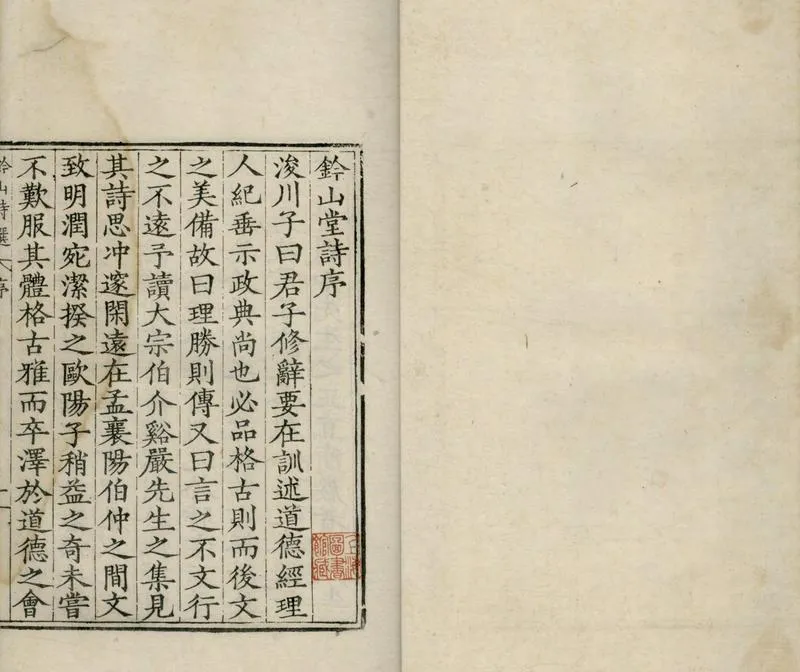 鈐山堂詩序
浚川子曰君子修辭要在訓述道德經理
人紀垂示政典尚也必品格古則而後文
之美備故曰理勝則傳又曰言之不文行
之不遠予讀大宗伯介谿嚴先生之集見
其詩思冲邃閑遠在孟襄陽伯仲之間文
致明潤宛潔揆之歐陽子稍益之奇未嘗
不歎服其體格古雅而卒澤於道德之會
鈐山詩選 序
圖書